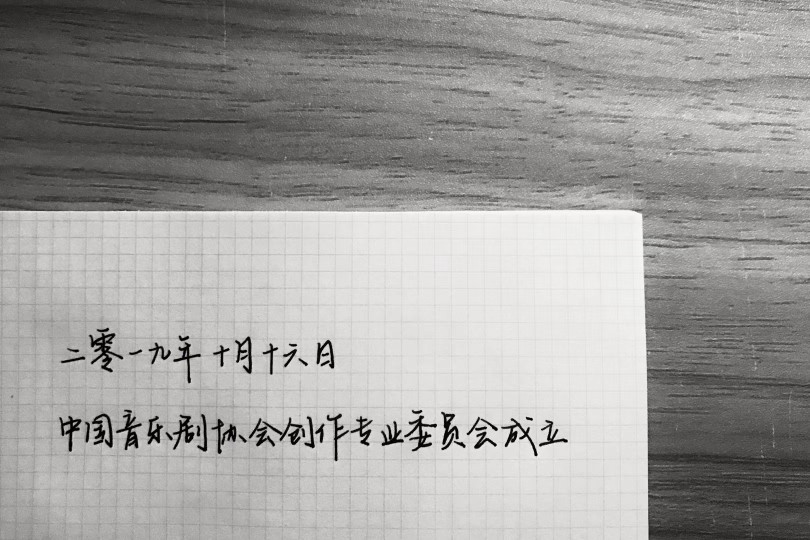 二零一九年十月十六日
中国音乐剧协会创作专业委员会成立